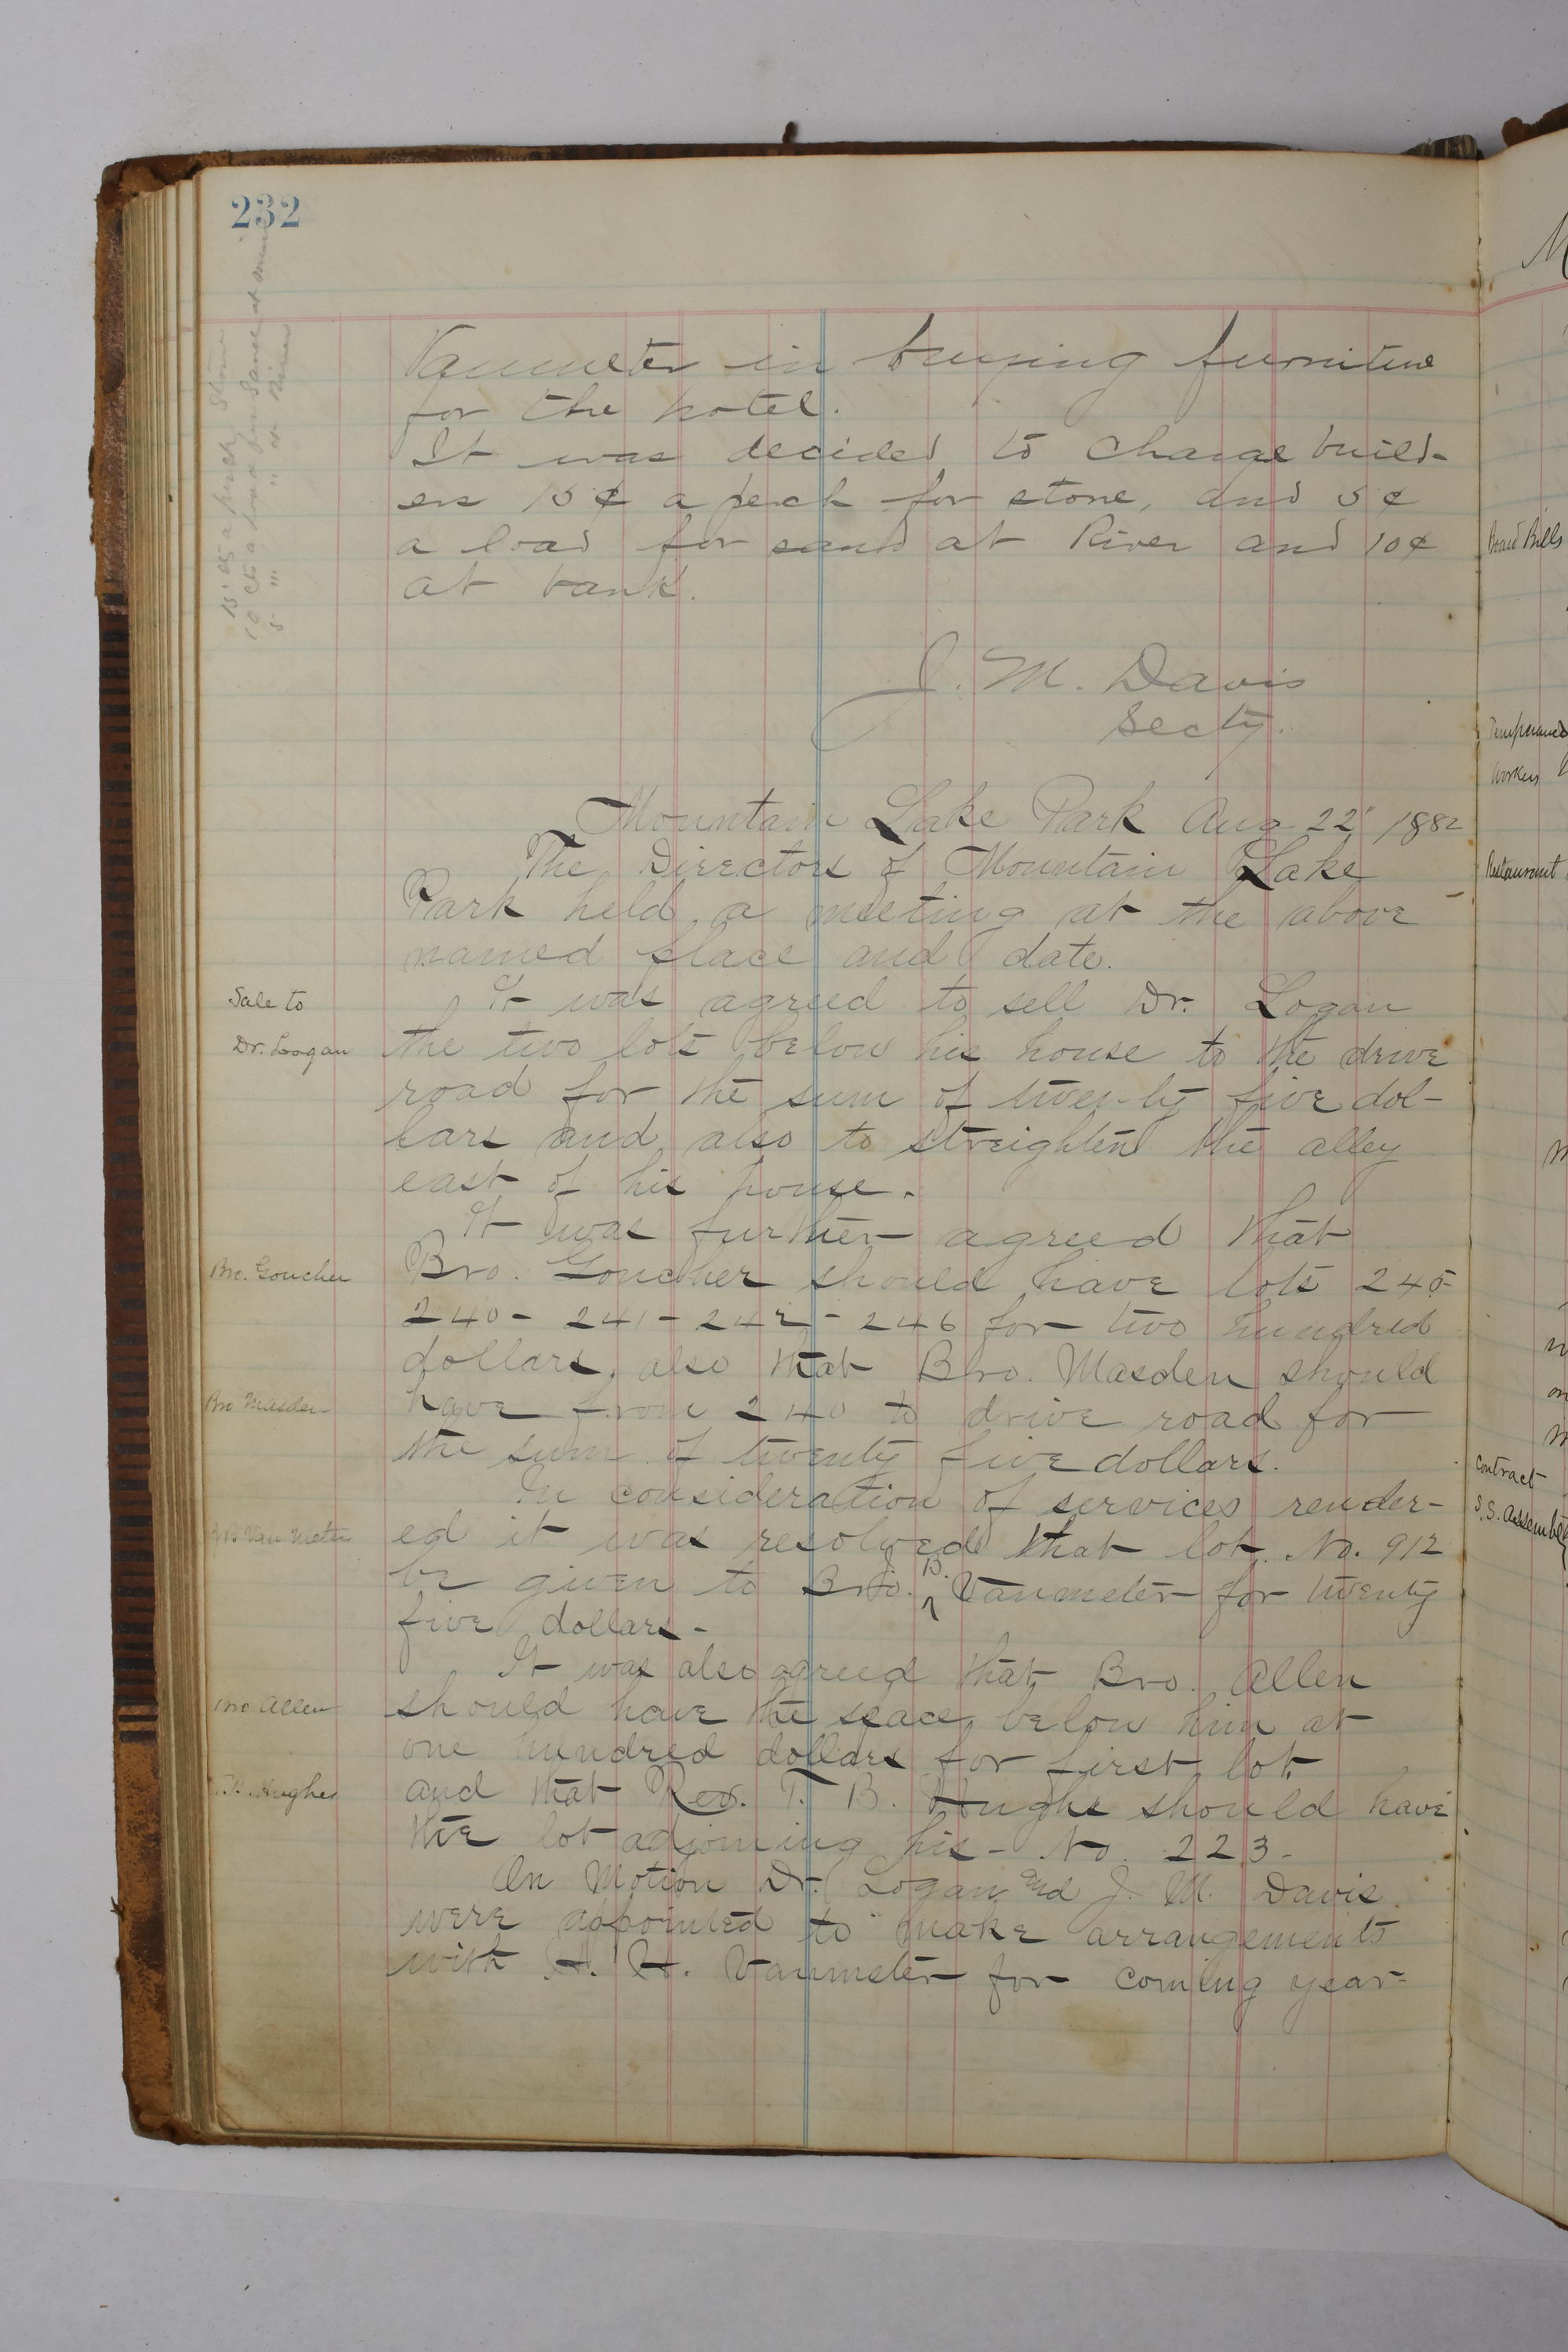 232
15 cts a perch stone
10 cts a load for sand at
5 " " " " " River
Vanmeter in buying furniture
for the hotel.
It was decided to charge build-
ers 15¢ a perch for stone, and 5¢
a load for sand at River and 10¢
at bank.
J. M. Davis
Secty.
Mountain Lake Park Aug 22" 1882
The Directors of Mountain Lake
Park held a meeting at the above
named place and date.
Sale to
Dr. Logan
It was agreed to sell Dr. Logan
the two lots below his house to the drive
road for the sum of twenty five dol-
lars and also to streighten the alley
east of his house.
It was further agreed that
Bro. Goucher
Bro. Goucher should have lots 245-
240- 241- 242- 246 for two hundred
dollars, also that Bro. Masden should
Bro Masden
have from 240 to drive road for
the sum of twenty five dollars.
In consideration of services render-
J B Van Meter
ed it was resolved that lot No. 912
be given to Bro. J.B. Vanmeter for twenty
five dollars-
It was also agreed that Bro. Allen
Bro Allen
should have the space below him at
one hundred dollars for first lot
T.B. Hughes
and that Rev. T. B. Hughs should have
the lot adjoining his- No. 223-
On Motion Dr. Logan and J. M. Davis
were appointed to make arrangements
with H. H. Vanmeter for coming year-
M
Board Bills
Temperance
Workers
Restaurant
Contract
S.S. Assembly